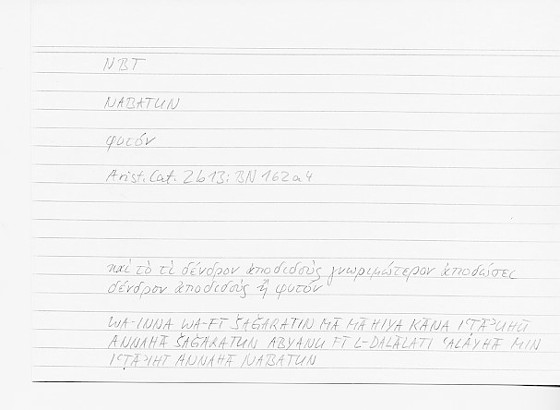 NBT
NABATUN
φυτόν
Arist. Cat. 2b13; BN 162a4
καὶ τὸ τὶ δένδρον ἀποδιδοὺς γνωριμώτερον ἀποδώσει
δένδρον ἀποδιδοὺς ἢ φυτόν
WA-INNA WA-FĪ ŠAĞARATIN MĀ MĀ HIYA KĀNA IʿṬĀʾUHŪ
ANNAHĀ ŠAĞARATUN ABYANU FĪ L-DALĀLATI ʿALAYHĀ MIN
IʿṬĀʾHĪ ANNAHĀ NABATUN